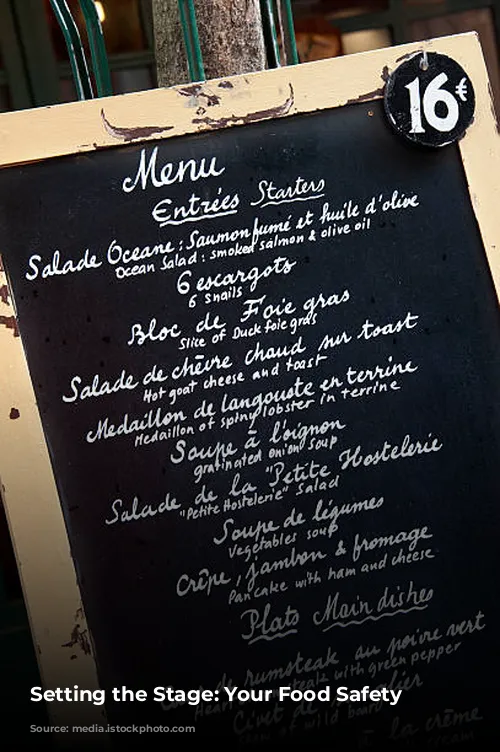 16€
Menu
Entrées Starters
Salade Oceane : Saumon fumé et huile d'olive
Ocean Salad : smoked salmon & olive oil
6 escargots
6 snails
Bloc de Foie gras
Slice of Duck foie gras
Salade de chèvre chaud sur toast
Hot goat cheese and toast
Medaillon de langouste en terrine
Medaillon of spiny lobster in terrine
Soupe à l'oignon
gratinated onion soup
Salade de la "Petite Hostelerie"
"Petite Hostelerie" Salad
Soupe de légumes
Vegetables soup
Crêpe, jambon & fromage
Pancake with ham and cheese
Plats Main dishes
de rumsteak au poivre vert
steak with green pepper
Civet de
of wild
à la crème
Setting the Stage: Your Food Safety
Source: media.istockphoto.com